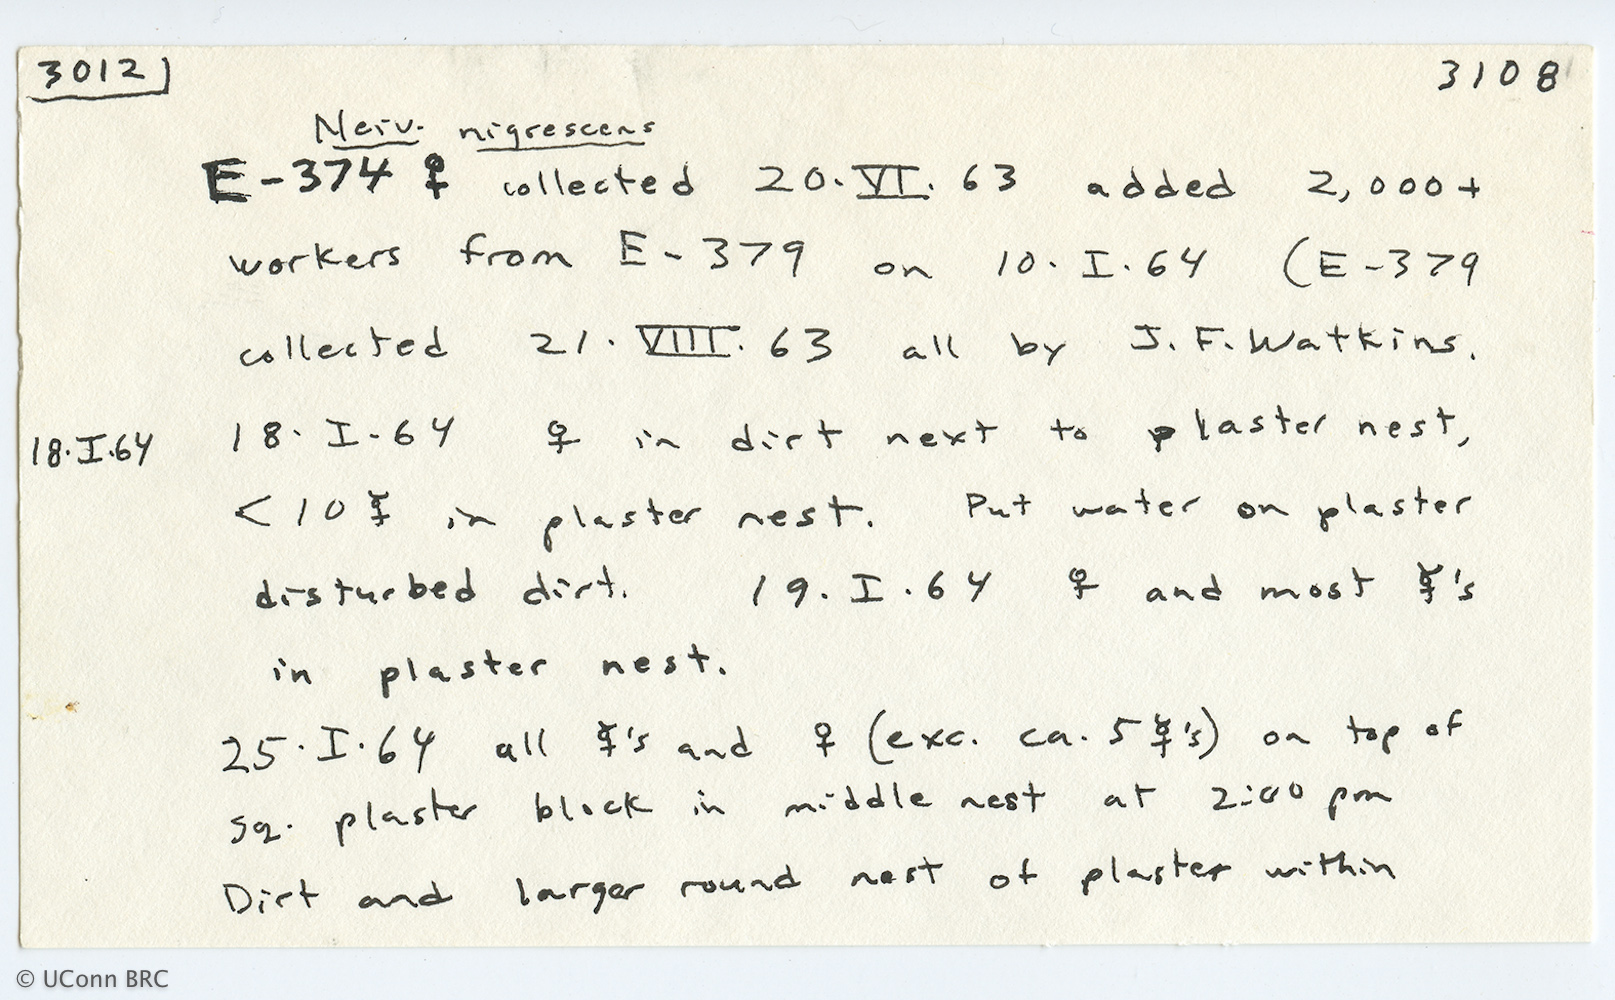 3012 3108
Neiv. nigrescens
E-374 ♀ collected 20.VI.63 added 2,000+
workers from E-379 on 10.I.64 (E-379
collected 21.VIII.63 all by J.F. Watkins.
18.I.64 18.I.64 ♀ in dirt next to plaster nest,
<10 ☿ in plaster nest. Put water on plaster
disturbed dirt. 19.I.64 ♀ and most ☿'s
in plaster nest.
25.I.64 all ☿'s and ♀ (exc. ca. 5 ☿'s) on top of
sq. plaster block in middle nest at 2:00 pm
Dirt and larger round nest of plaster within
© UConn BRC